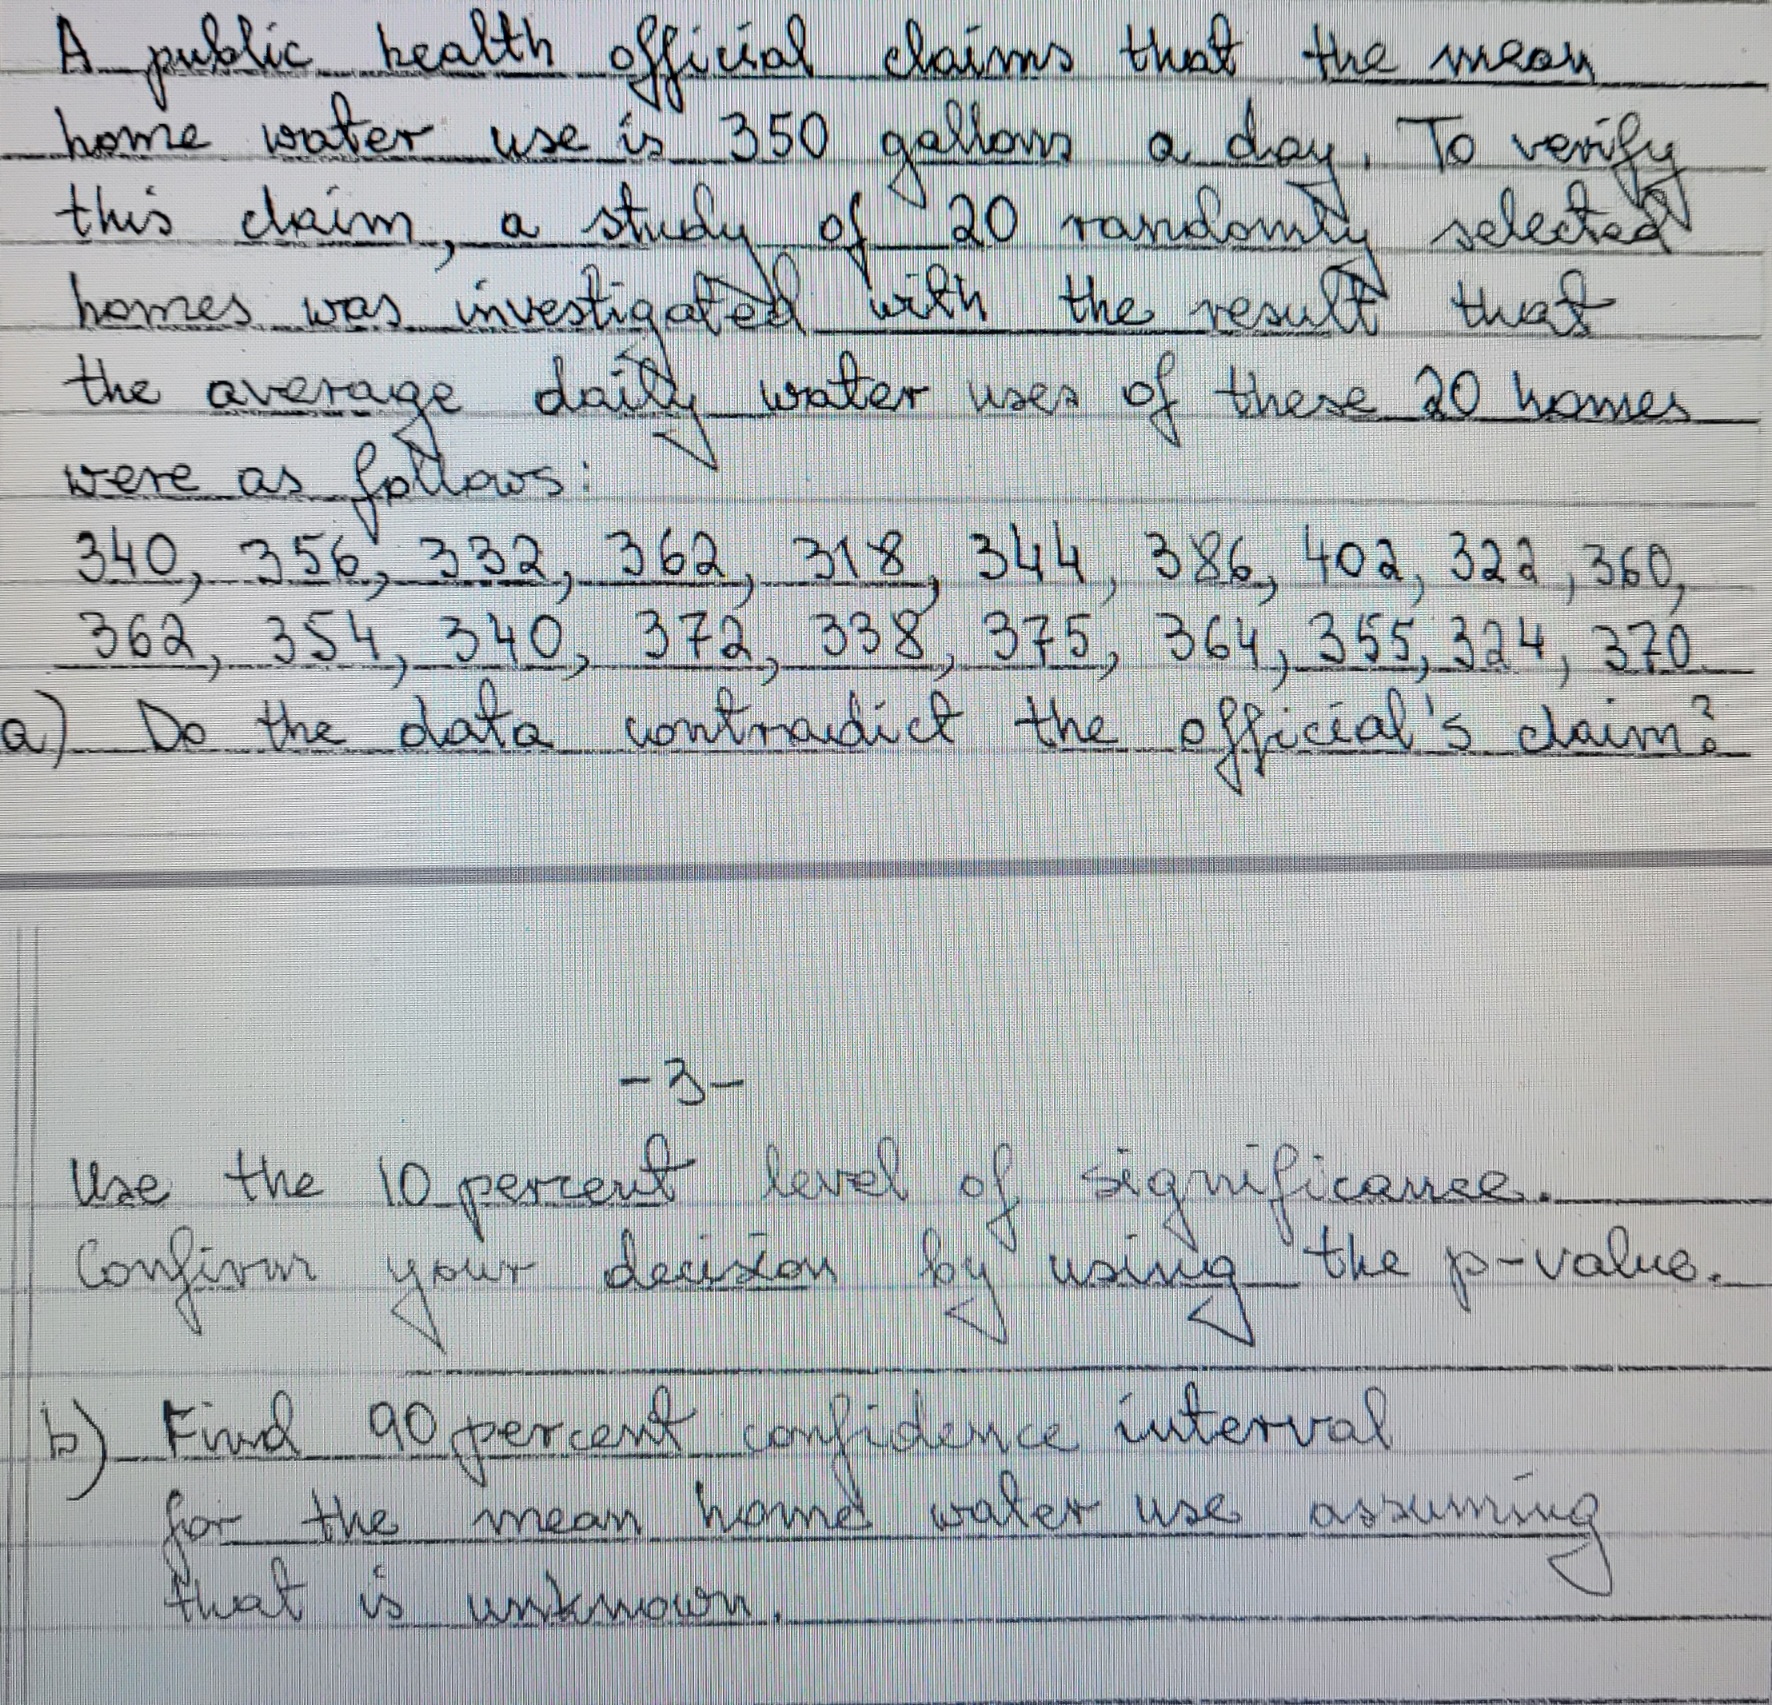 A public health official claims that the mean
home water use is 350 gallons a day. To verify
this claim, a study of 20 randomly selected
homes was investigated with the result that
the average daily water uses of these 20 homes
were as follows:
340, 356, 332, 362, 318, 344, 386, 402, 322, 360,
362, 354, 340, 372, 338, 375, 364, 355, 324, 370.
a) Do the data contradict the official's claim?
-3-
Use the 10 percent level of significance.
Confirm your decision by using the p-value.
b) Find 90 percent confidence interval
for the mean home water use assuming
that is unknown.